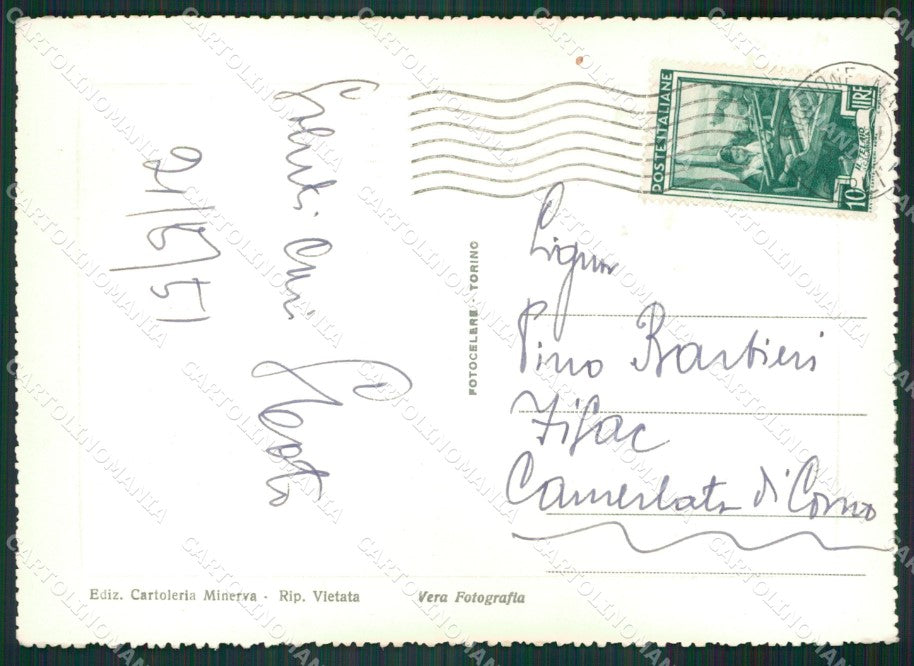 Saluti cari
21/8/51
POSTE ITALIANE
10 LIRE
FOTOCELERE - TORINO
Signor
Pino Barbieri
Fisac
Camerlata di Como
Ediz. Cartoleria Minerva - Rip. Vietata
Vera Fotografia
CARTOLINOMANIA